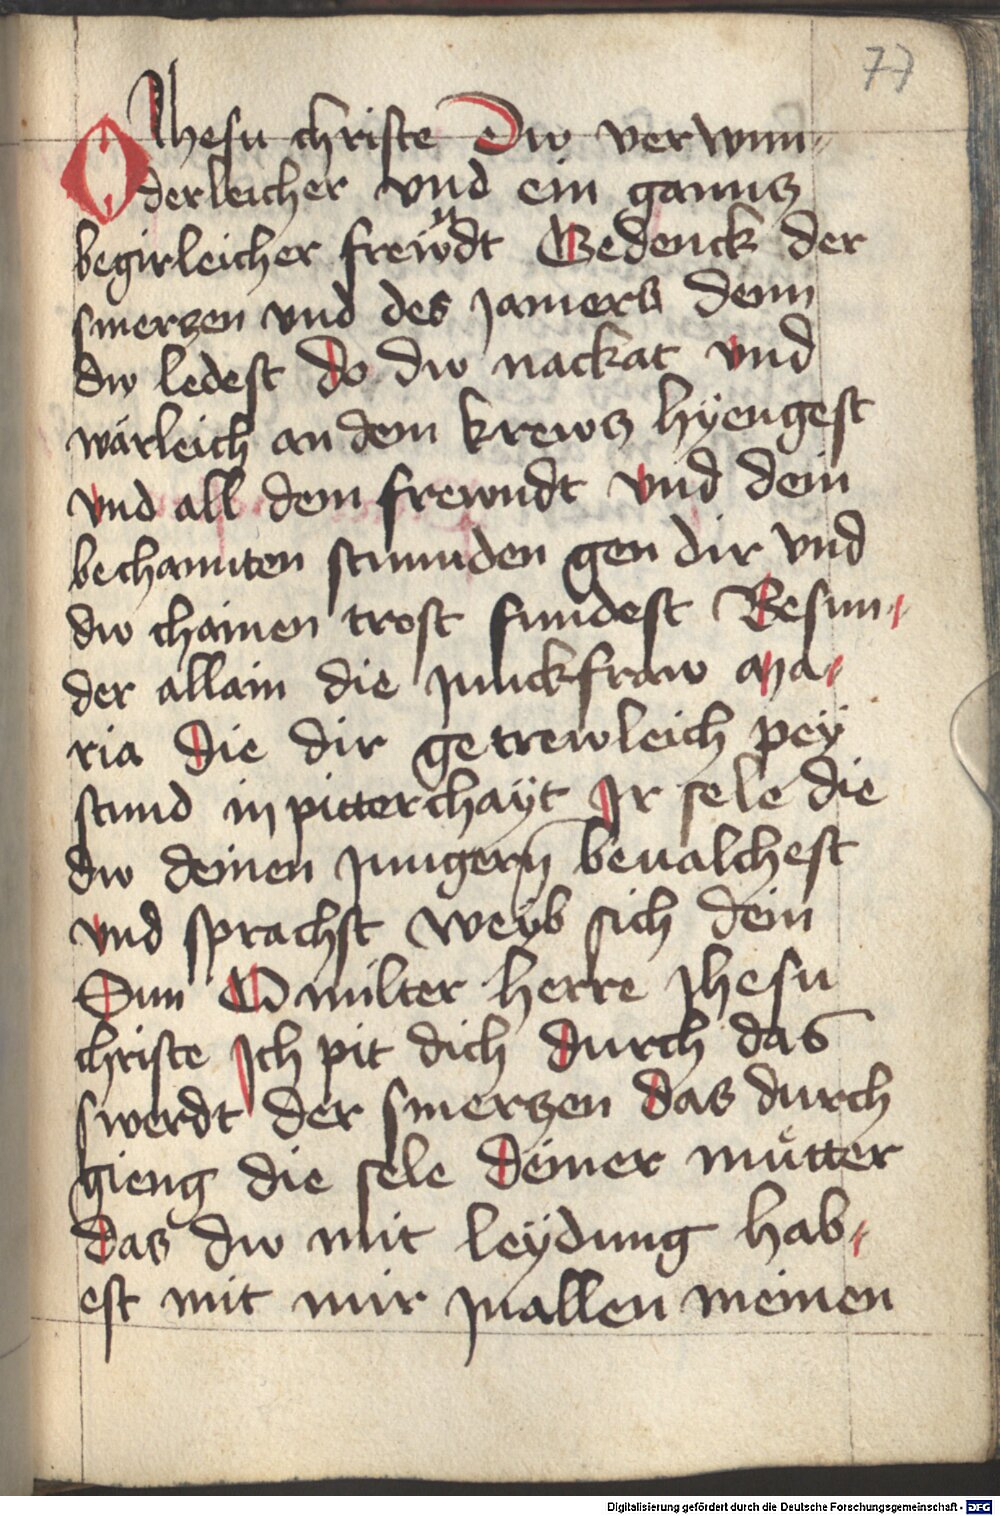 77
O Jhesu christe Dw verwun-
derleicher vnd ein gannts
begirleicher frewndt Gedenck der
smerczen vnd des jamers denn
dw ledest do dw nackat vnd
wärleich an dem krewcz hÿengest
vnd all dem frewndt vnd dein
bechannten stuunden gen dir vnd
dw chainen trost fundest Besun-
der allain die junckfraw Ma-
ria die dir getrewleich peÿ
stund in pitterchaÿt Jr sele die
dw deinen jungern̄ beualchest
vnd sprachst weÿb sich dein
Sun O milter herre Jhesu
christe Ich pit dich durch das
swerdt der smerczen das durch
gieng die sele deiner muͤtter
das dw mit leÿdung hab-
est mit mir jn allen meinen
Digitalisierung gefördert durch die Deutsche Forschungsgemeinschaft - DFG